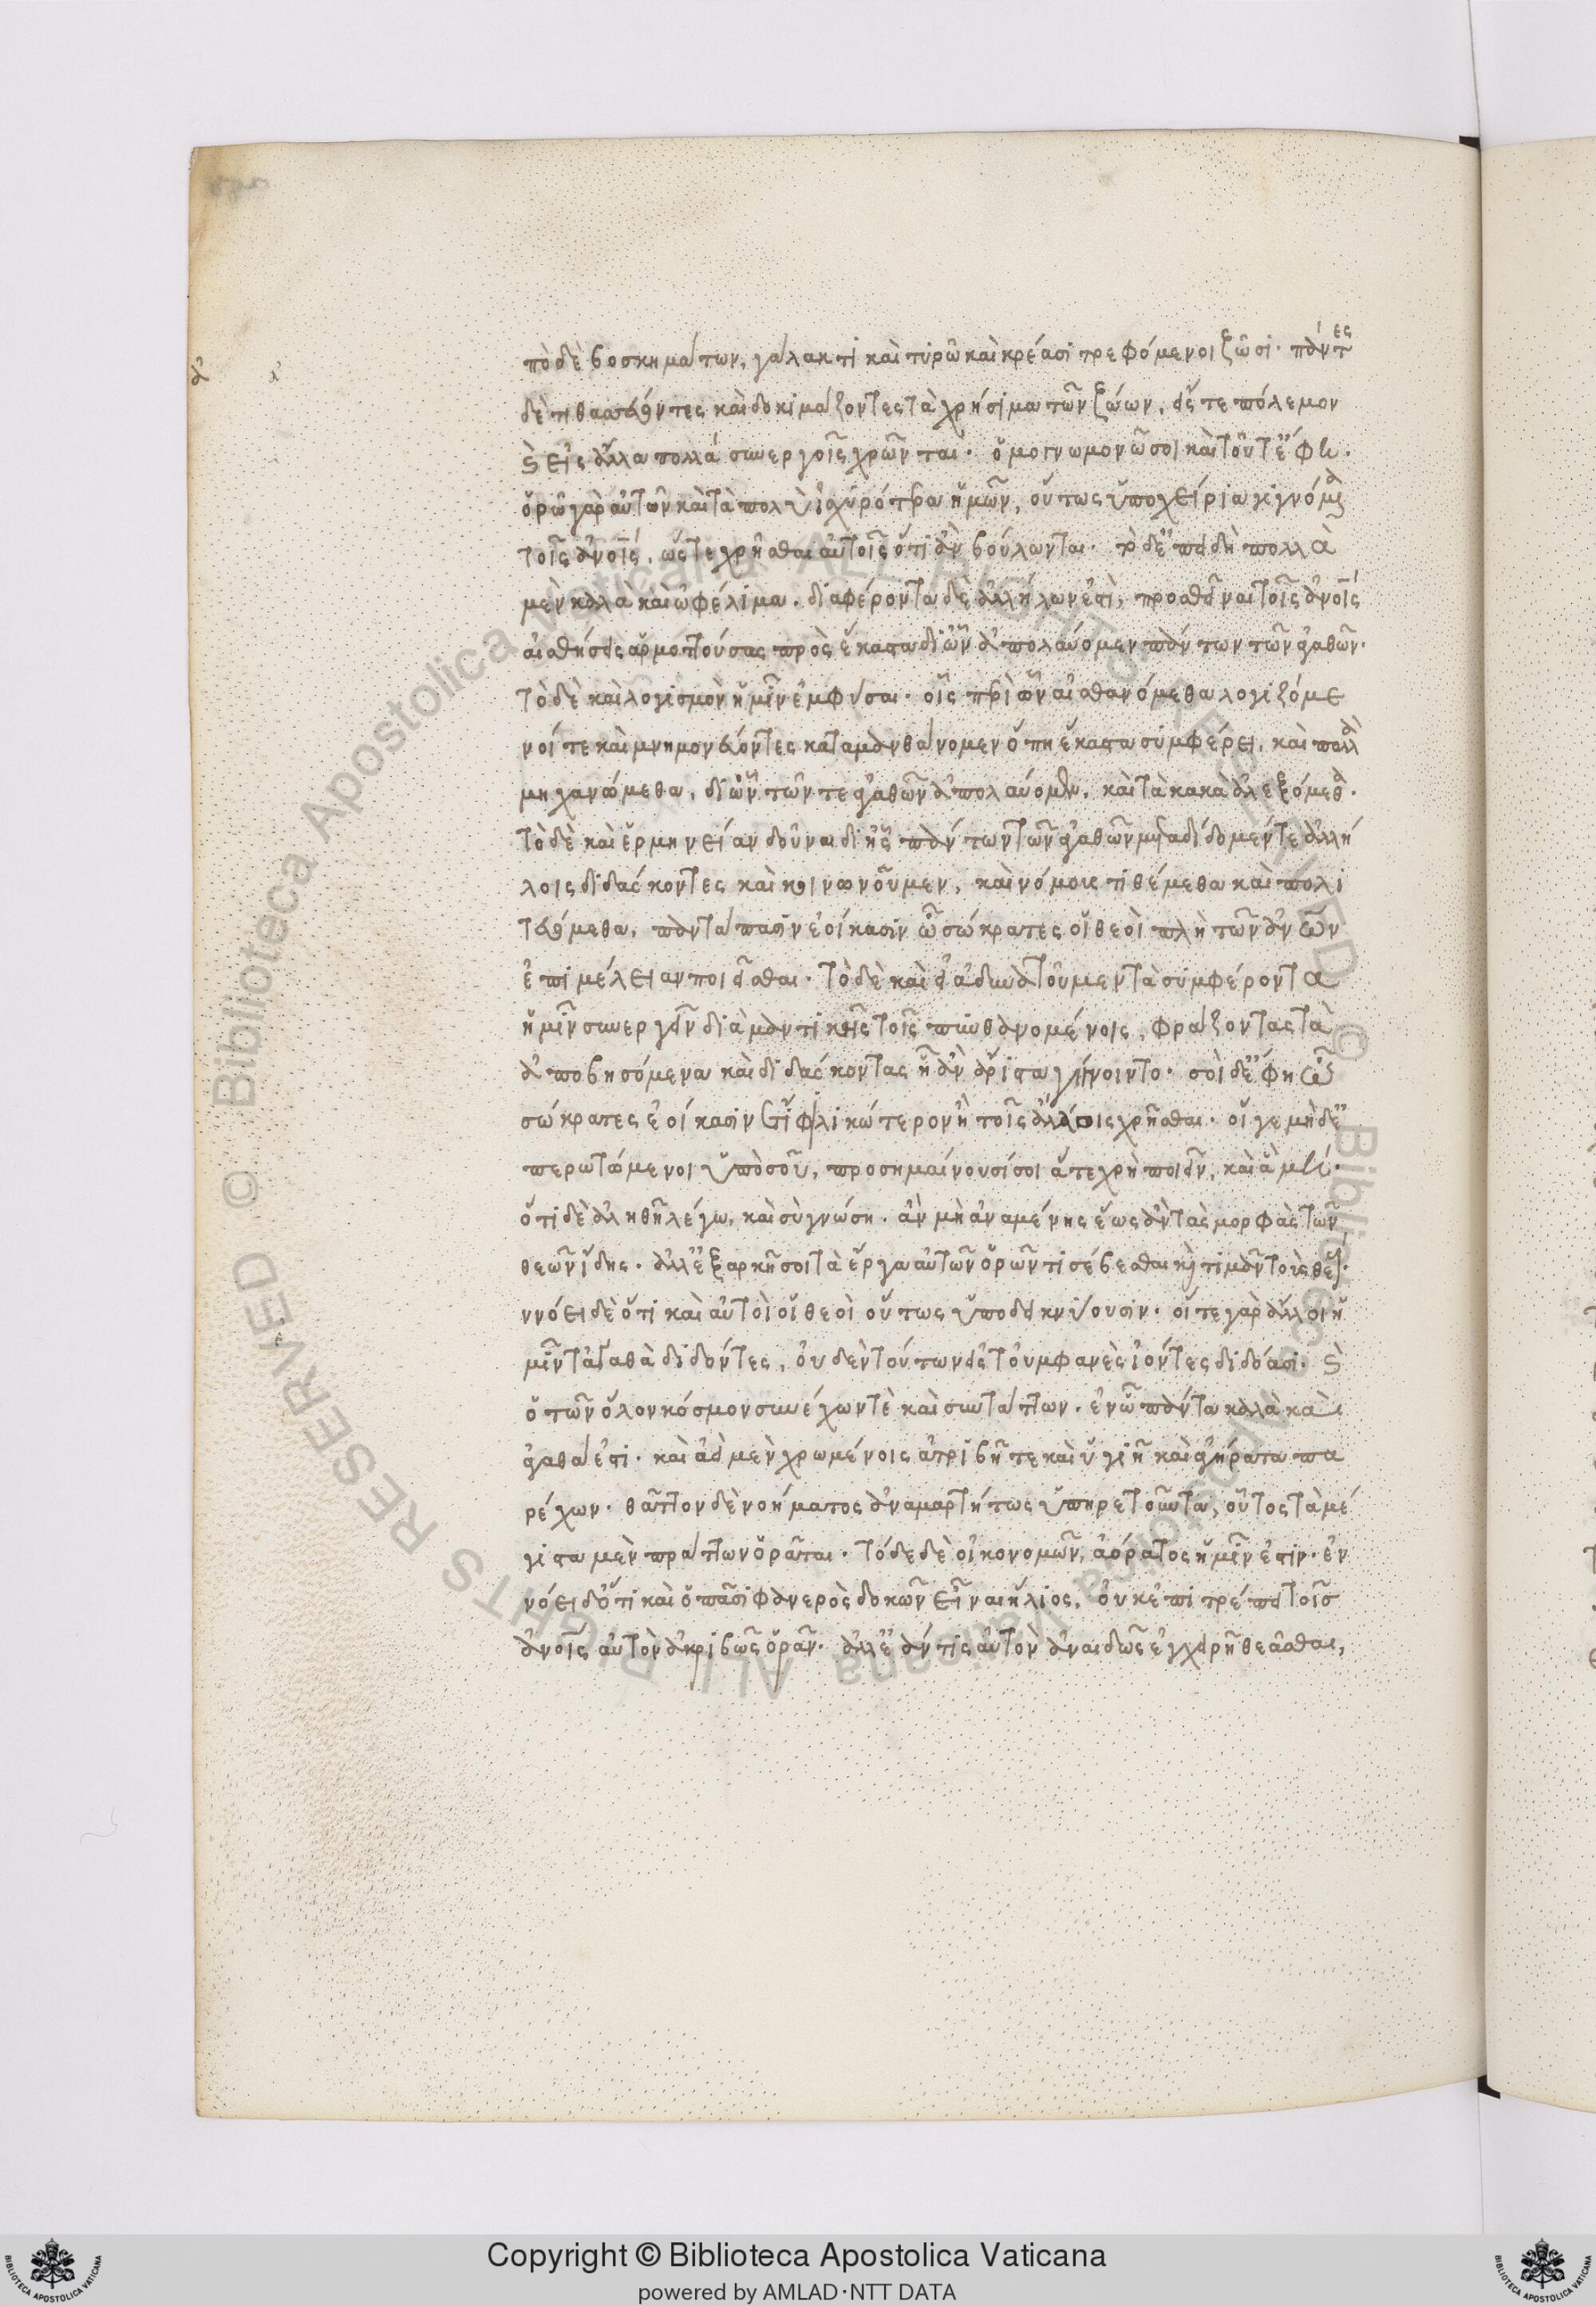 πὸ δὲ βοσκημάτων, γάλακτι καὶ τυρῶ καὶ κρέασι τρεφόμενοι ζῶσι· πάντες
δὲ τιθασεύοντες καὶ δαμάζοντες τὰ χρήσιμα τῶν ζώων, εἴς τε πόλεμον
καὶ εἰς ἄλλα πολλὰ συνεργοῖς χρῶνται· ὁμογνωμονῶ σοι καὶ τοῦτ' ἔφη·
ὁρῶ γὰρ αὐτῶν καὶ τὰ πολὺ ἰσχυρότερα ἡμῶν, οὕτως ὑποχείρια γιγνόμενα
τοῖς ἀνοις, ὥστε χρῆσθαι αὐτοῖς ὅτι ἂν βούλωνται· τὸ δ' ἐπειδὴ πολλὰ
μὲν καλὰ καὶ ὠφέλιμα, διαφέροντα δὲ ἀλλήλων ἐστὶ, προσθεῖναι τοῖς ἀνοις
αἰσθήσεις ἁρμοττούσας πρὸς ἕκαστα δι' ὧν ἀπολαύομεν πάντων τῶν ἀγαθῶν·
τὸ δὲ καὶ λογισμὸν ἡμῖν ἐμφῦσαι· οἷς περὶ ὧν αἰσθανόμεθα λογιζόμε
νοί τε καὶ μνημονεύοντες καταμανθάνομεν ὅπη ἕκαστα συμφέρει, καὶ πολλὰ
μηχανώμεθα, δι' ὧν τῶν τε ἀγαθῶν ἀπολαύομεν, καὶ τὰ κακὰ ἀλεξόμεθα·
τὸ δὲ καὶ ἑρμηνείαν δοῦναι δι' ἧς πάντων τῶν ἀγαθῶν μεταδίδομέν τε ἀλλή
λοις διδάσκοντες καὶ κοινωνοῦμεν, καὶ νόμους τιθέμεθα καὶ πολι
τευόμεθα. παντάπασιν ἐοίκασιν ὦ σώκρατες οἱ θεοὶ πολλὴν τῶν ἀνων
ἐπιμέλειαν ποιεῖσθαι· τὸ δὲ καὶ εἰ ἀδυνατοῦμεν τὰ συμφέροντα
ἡμῖν συνεργεῖν διὰ μαντικῆς τοῖς πυνθανομένοις, φράζοντας τὰ
ἀποβησόμενα καὶ διδάσκοντας ἧ ἂν ἄριστα γίνοιντο· σοὶ δ' ἔφη ὦ
σώκρατες ἐοίκασιν ἔτι φιλικώτερον ἢ τοῖς ἄλλοις χρῆσθαι· οἵ γε μηδ' ἐ
περωτώμενοι ὑπὸ σοῦ, προσημαίνουσί σοι ἅ τε χρὴ ποιεῖν, καὶ ἃ μή·
ὅτι δὲ ἀληθῆ λέγω, καὶ σὺ γνώση· ἂν μὴ ἀναμένης ἕως ἂν τὰς μορφὰς τῶν
θεῶν ἴδης· ἀλλ' ἐξαρκῆ σοι τὰ ἔργα αὐτῶν ὁρῶντι σέβεσθαι καὶ τιμᾶν τοὺς θεούς·
ννόει δὲ ὅτι καὶ αὐτοὶ οἱ θεοὶ οὕτως ὑποδεικνύουσιν· οἵ τε γὰρ ἄλλοι ἡ
μῖν τἀγαθὰ διδόντες, οὐδὲν τούτων εἰς τοὐμφανὲς ἰόντες διδόασι· καὶ
ὁ τῶν ὅλον κόσμον συνέχων τὲ καὶ συντάττων. ἐν ὧ πάντα καλὰ καὶ
ἀγαθά ἐστι· καὶ ἀεὶ μὲν χρωμένοις ἀτριβῆ τε καὶ ὑγιῆ καὶ ἀγήρατα πα
ρέχων· θᾶττον δὲ νοήματος ἀναμαρτήτως ὑπηρετοῦντα, οὗτος τὰ μέ
γιστα μὲν πράττων ὁρᾶται· τόδε δὲ οἰκονομῶν, ἀόρατος ἡμῖν ἐστιν· ἐν
νόει δ' ὅτι καὶ ὁ πᾶσι φανερὸς δοκῶν εἶναι ἥλιος, οὐκ ἐπιτρέπει τοῖς
ἀνοις αὐτὸν ἀκριβῶς ὁρᾶν· ἀλλ' ἐάν τις αὐτὸν ἀναιδῶς ἐγχειρῆ θεᾶσθαι,
Copyright © Biblioteca Apostolica Vaticana
powered by AMLAD·NTT DATA